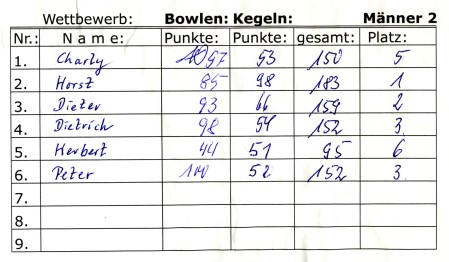 Wettbewerb: Bowlen: Kegeln: Männer 2
Nr.: Name: Punkte: Punkte: gesamt: Platz:
1. Charly 97 53 150 5
2. Horst 85 98 183 1
3. Dieter 93 66 159 2
4. Dietrich 98 54 152 3
5. Herbert 44 51 95 6
6. Peter 100 52 152 3
7.
8.
9.